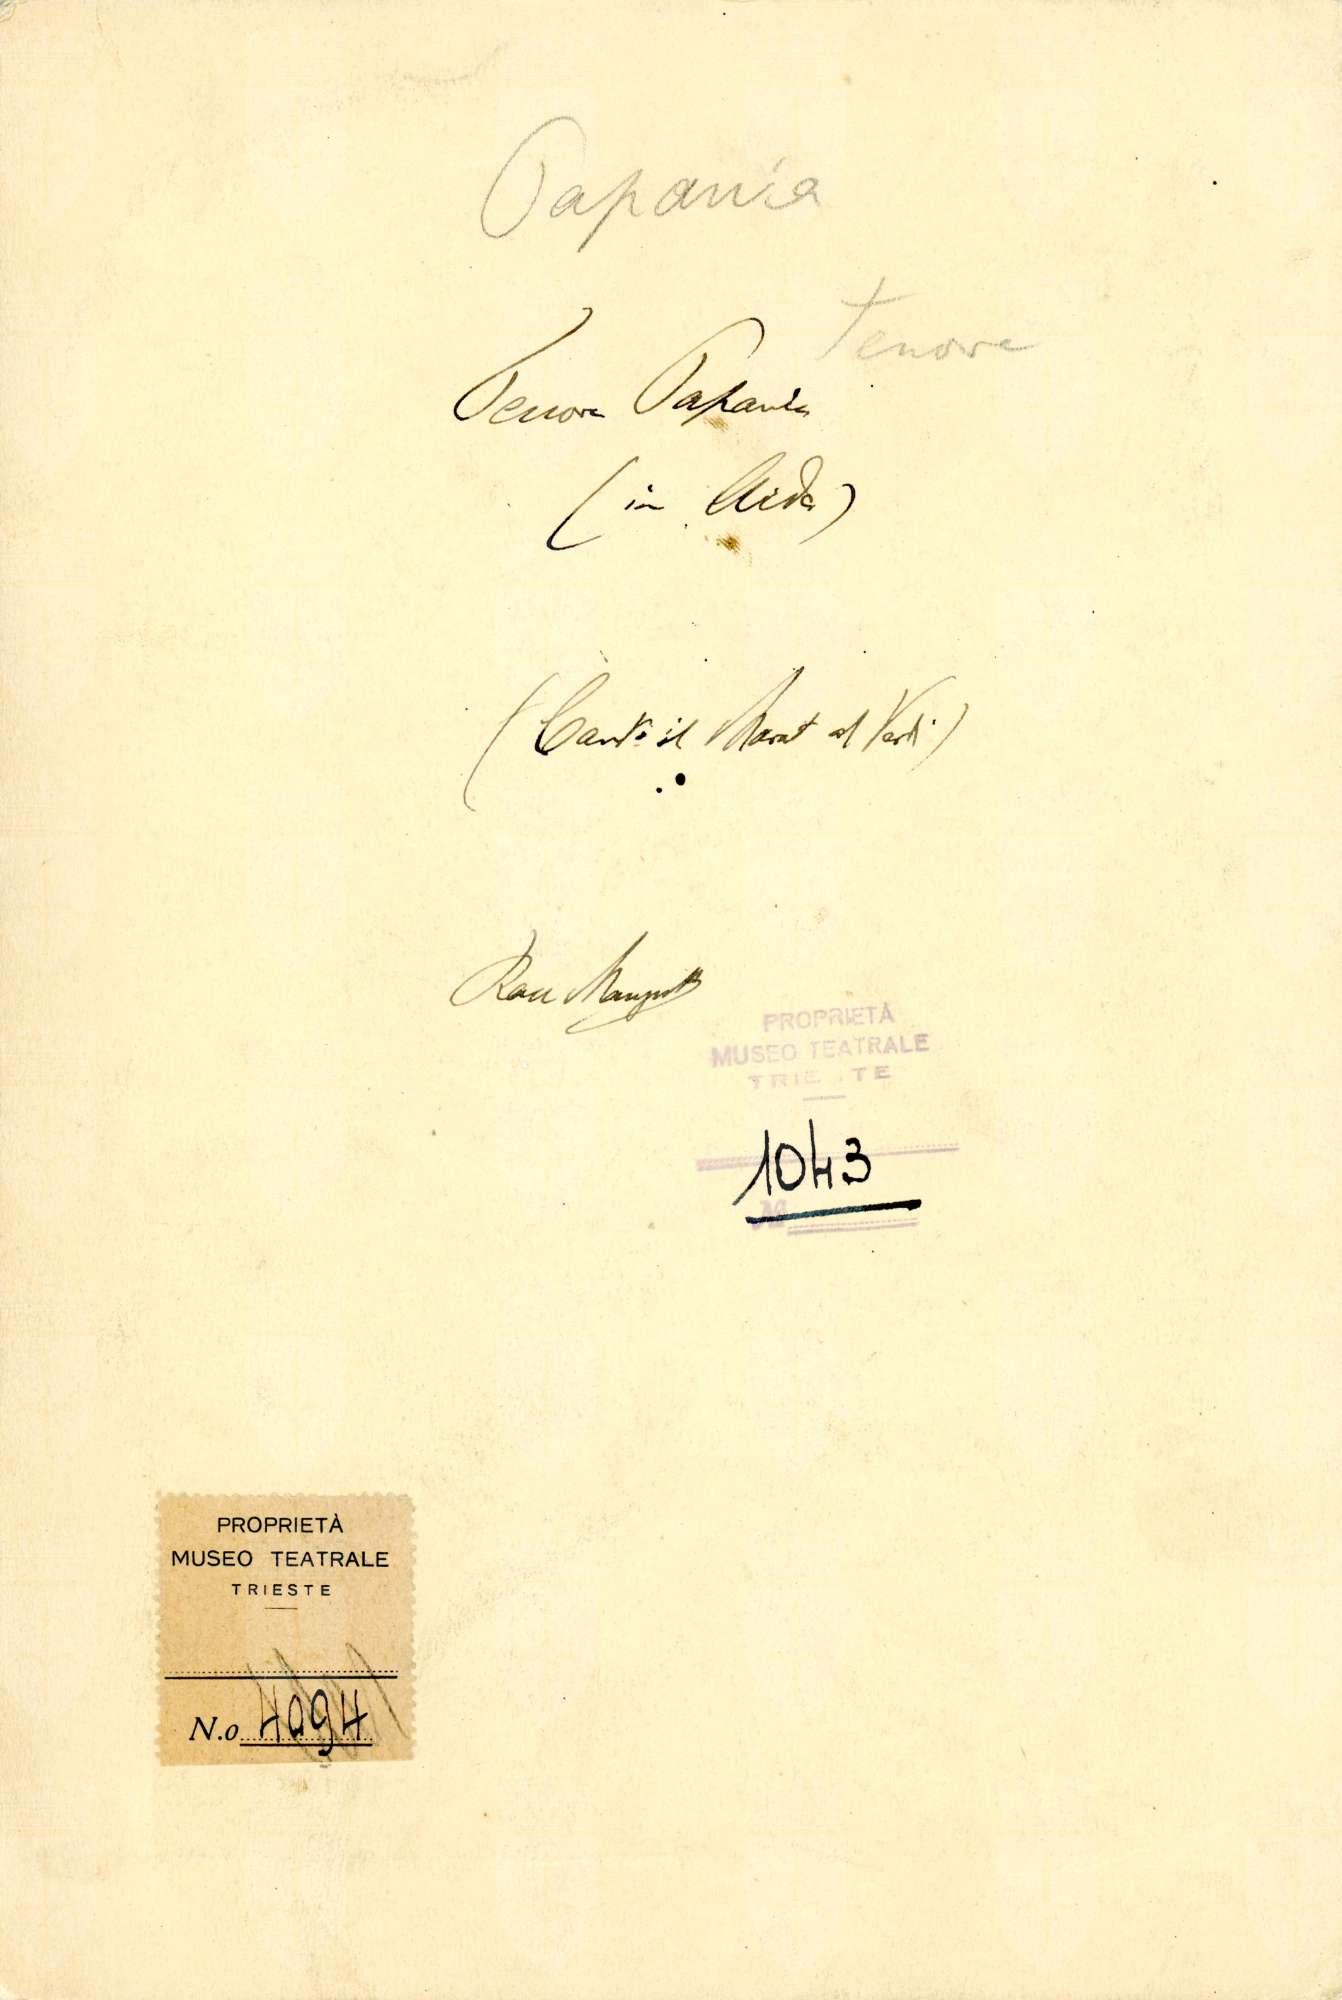 Papania
Tenore
Tenore Papania
(in Aida)
(Cantò il Marat al Verdi)
PROPRIETÀ
MUSEO TEATRALE
TRIESTE
1043
No
PROPRIETÀ
MUSEO TEATRALE
TRIESTE
N.o 4094